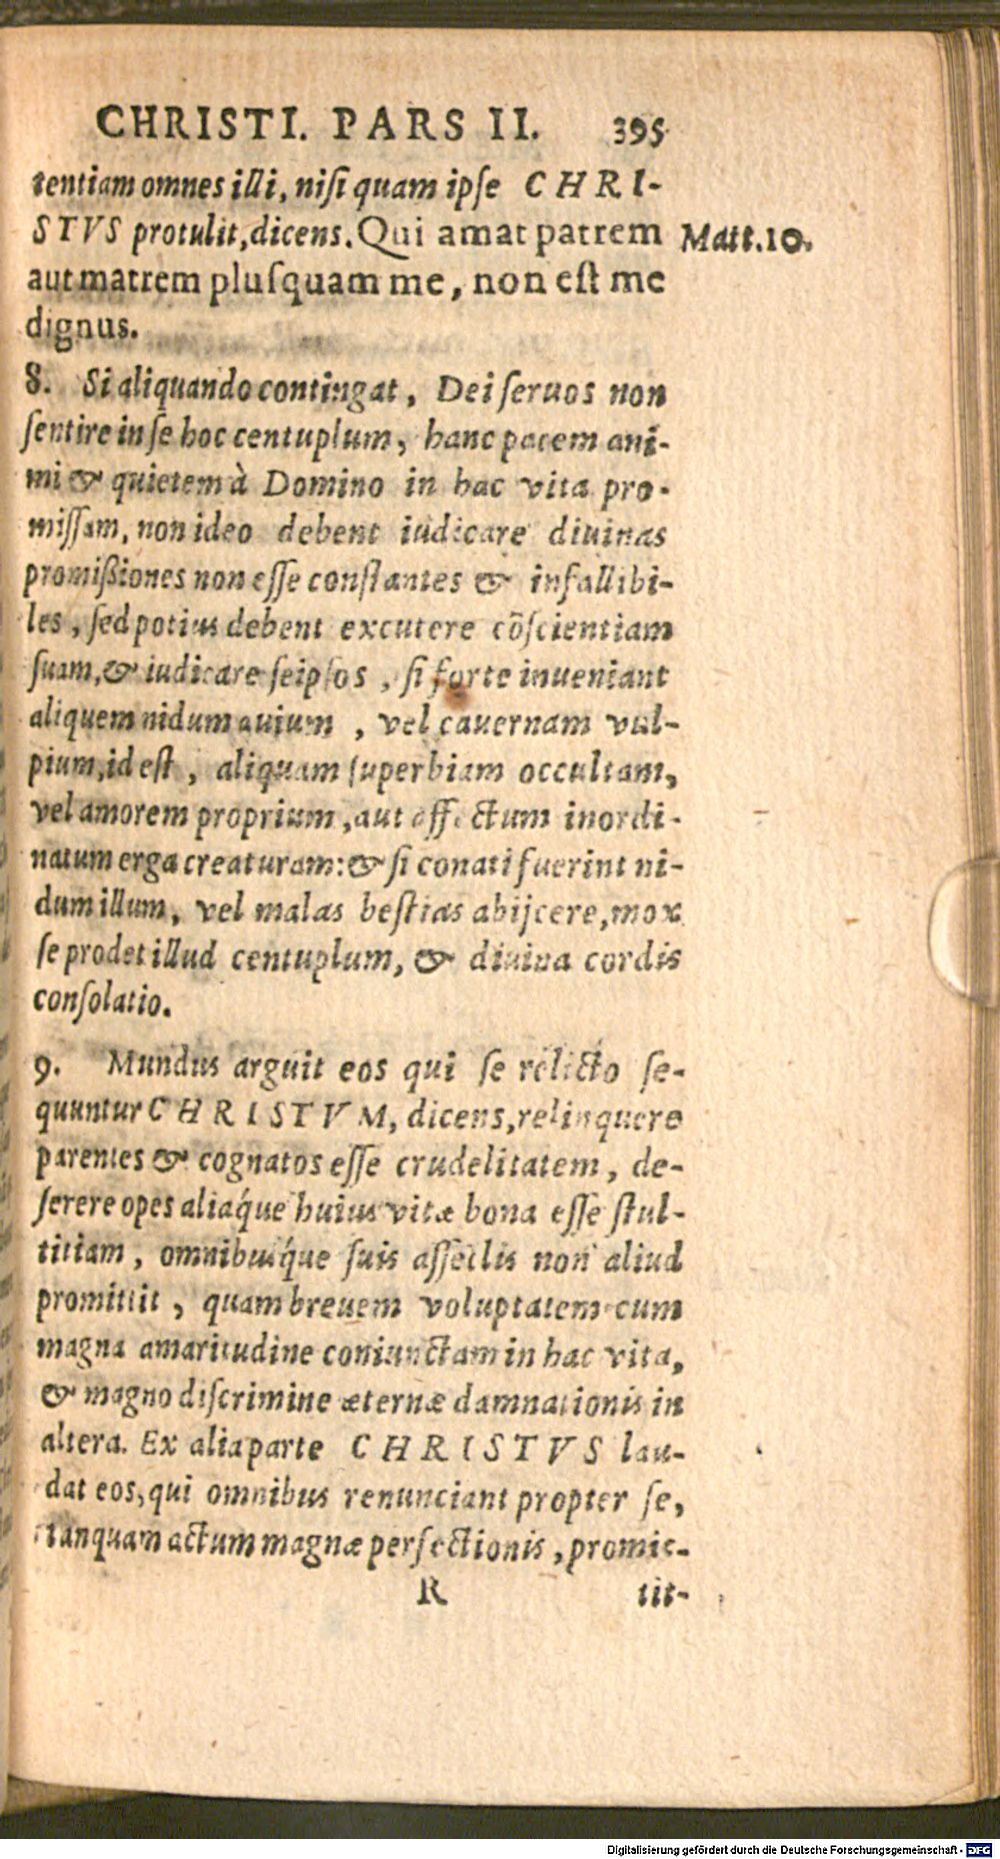 CHRISTI. PARS II. 395
tentiam omnes illi, niſi quam ipſe CHRI-
STVS protulit, dicens. Qui amat patrem
Matt.10.
aut matrem pluſquam me, non eſt me
dignus.
8. Si aliquando contingat, Dei ſeruos non
ſentire in ſe hoc centuplum, hanc pacem ani-
mi & quietem à Domino in hac vita pro-
miſſam, non ideo debent iudicare diuinas
promißiones non eſſe conſtantes & infallibi-
les, ſed potius debent excutere cõſcientiam
ſuam, & iudicare ſeipſos, ſi forte inueniant
aliquem nidum auium, vel cauernam vul-
pium, id eſt, aliquam ſuperbiam occultam,
vel amorem proprium, aut affectum inordi-
natum erga creaturam: & ſi conati fuerint ni-
dum illum, vel malas beſtias abijcere, mox
ſe prodet illud centuplum, & diuina cordis
conſolatio.
9. Mundus arguit eos qui ſe relicto ſe-
quuntur CHRISTVM, dicens, relinquere
parentes & cognatos eſſe crudelitatem, de-
ſerere opes aliaq́ue huius vitæ bona eſſe ſtul-
titiam, omnibusq́ue ſuis aſſeclis non aliud
promittit, quam breuem voluptatem cum
magna amaritudine coniunctam in hac vita,
& magno diſcrimine æternæ damnationis in
altera. Ex alia parte CHRISTVS lau-
dat eos, qui omnibus renunciant propter ſe,
tanquam actum magnæ perfectionis, promit-
R tit-
Digitalisierung gefördert durch die Deutsche Forschungsgemeinschaft - DFG